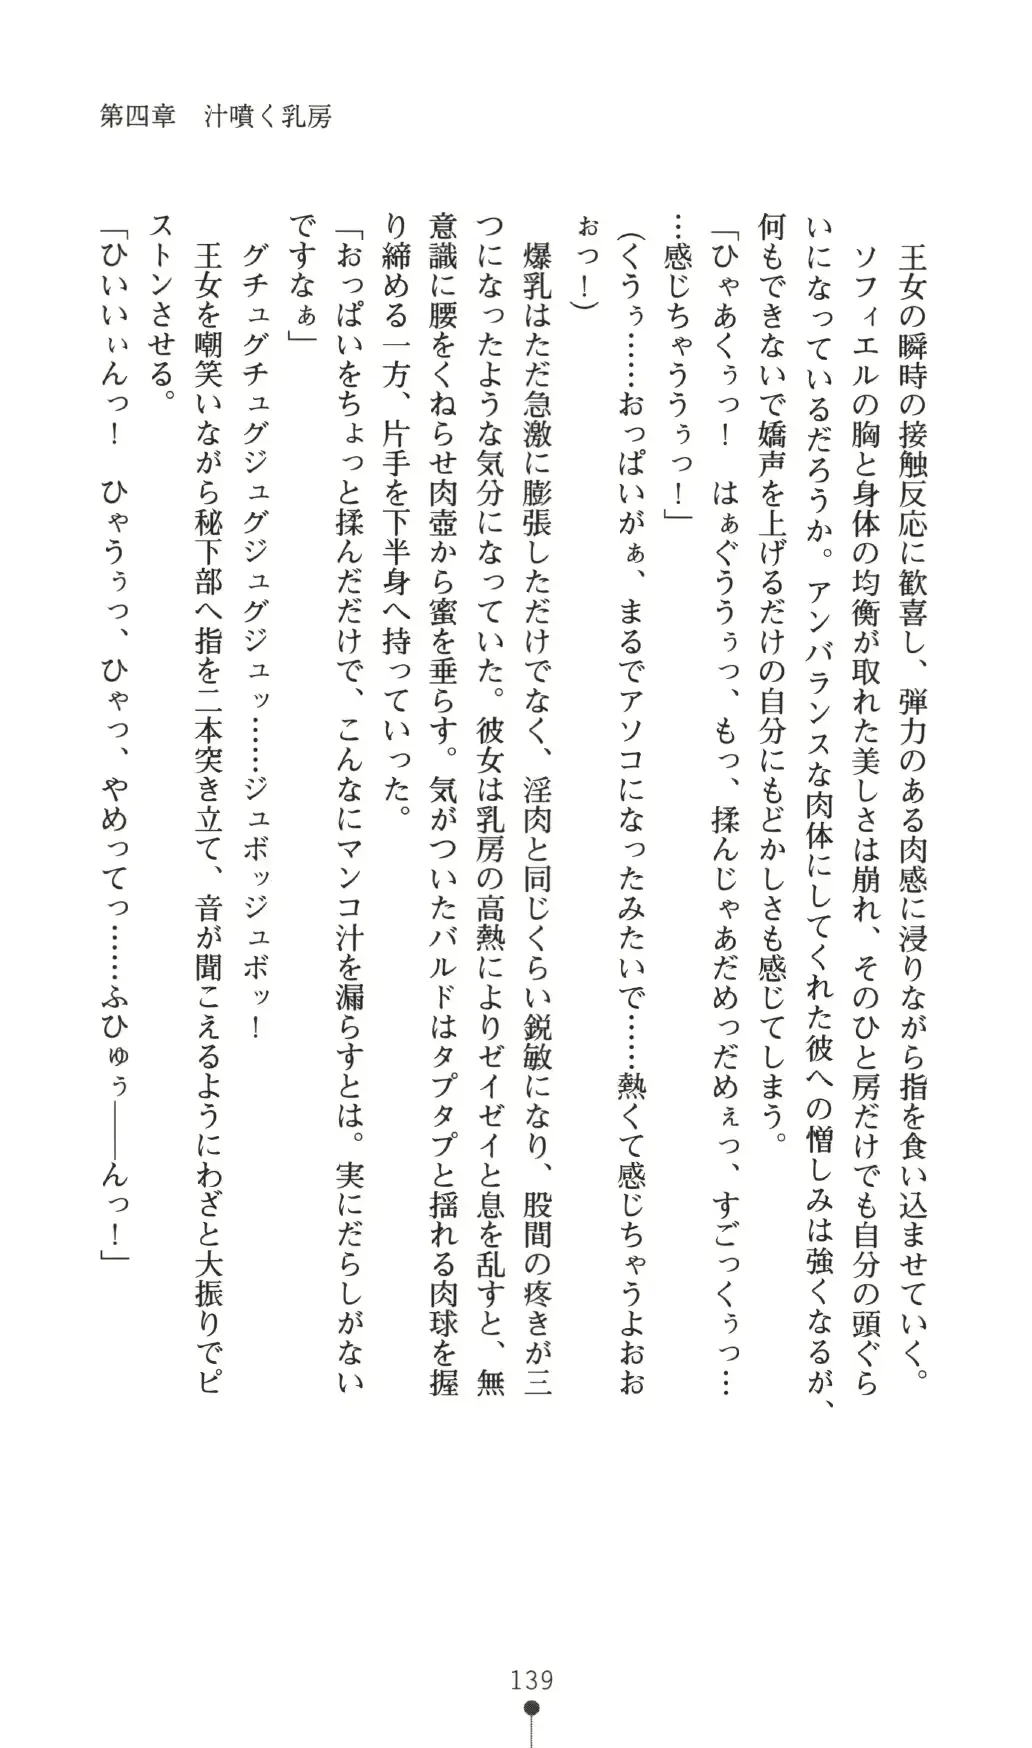 第四章　汁噴く乳房
　王女の瞬時の接触反応に歓喜し、弾力のある肉感に浸りながら指を食い込ませていく。
　ソフィエルの胸と身体の均衡が取れた美しさは崩れ、そのひと房だけでも自分の頭ぐら
いになっているだろうか。アンバランスな肉体にしてくれた彼への憎しみは強くなるが、
何もできないで嬌声を上げるだけの自分にもどかしさも感じてしまう。
「ひゃあくぅっ！　はぁぐううぅっ、もっ、揉んじゃあだめっだめぇっ、すごっくぅっ…
…感じちゃううぅっ！」
（くうぅ……おっぱいがぁ、まるでアソコになったみたいで……熱くて感じちゃうよおお
ぉっ！）
　爆乳はただ急激に膨張しただけでなく、淫肉と同じくらい鋭敏になり、股間の疼きが三
つになったような気分になっていた。彼女は乳房の高熱によりゼイゼイと息を乱すと、無
意識に腰をくねらせ肉壺から蜜を垂らす。気がついたバルドはタプタプと揺れる肉球を握
り締める一方、片手を下半身へ持っていった。
「おっぱいをちょっと揉んだだけで、こんなにマンコ汁を漏らすとは。実にだらしがない
ですなぁ」
　グチュグチュグジュグジュグジュッ……ジュボッジュボッ！
　王女を嘲笑いながら秘下部へ指を二本突き立て、音が聞こえるようにわざと大振りでピ
ストンさせる。
「ひいいぃんっ！　ひゃうぅっ、ひゃっ、やめってっ……ふひゅぅ――んっ！」
139